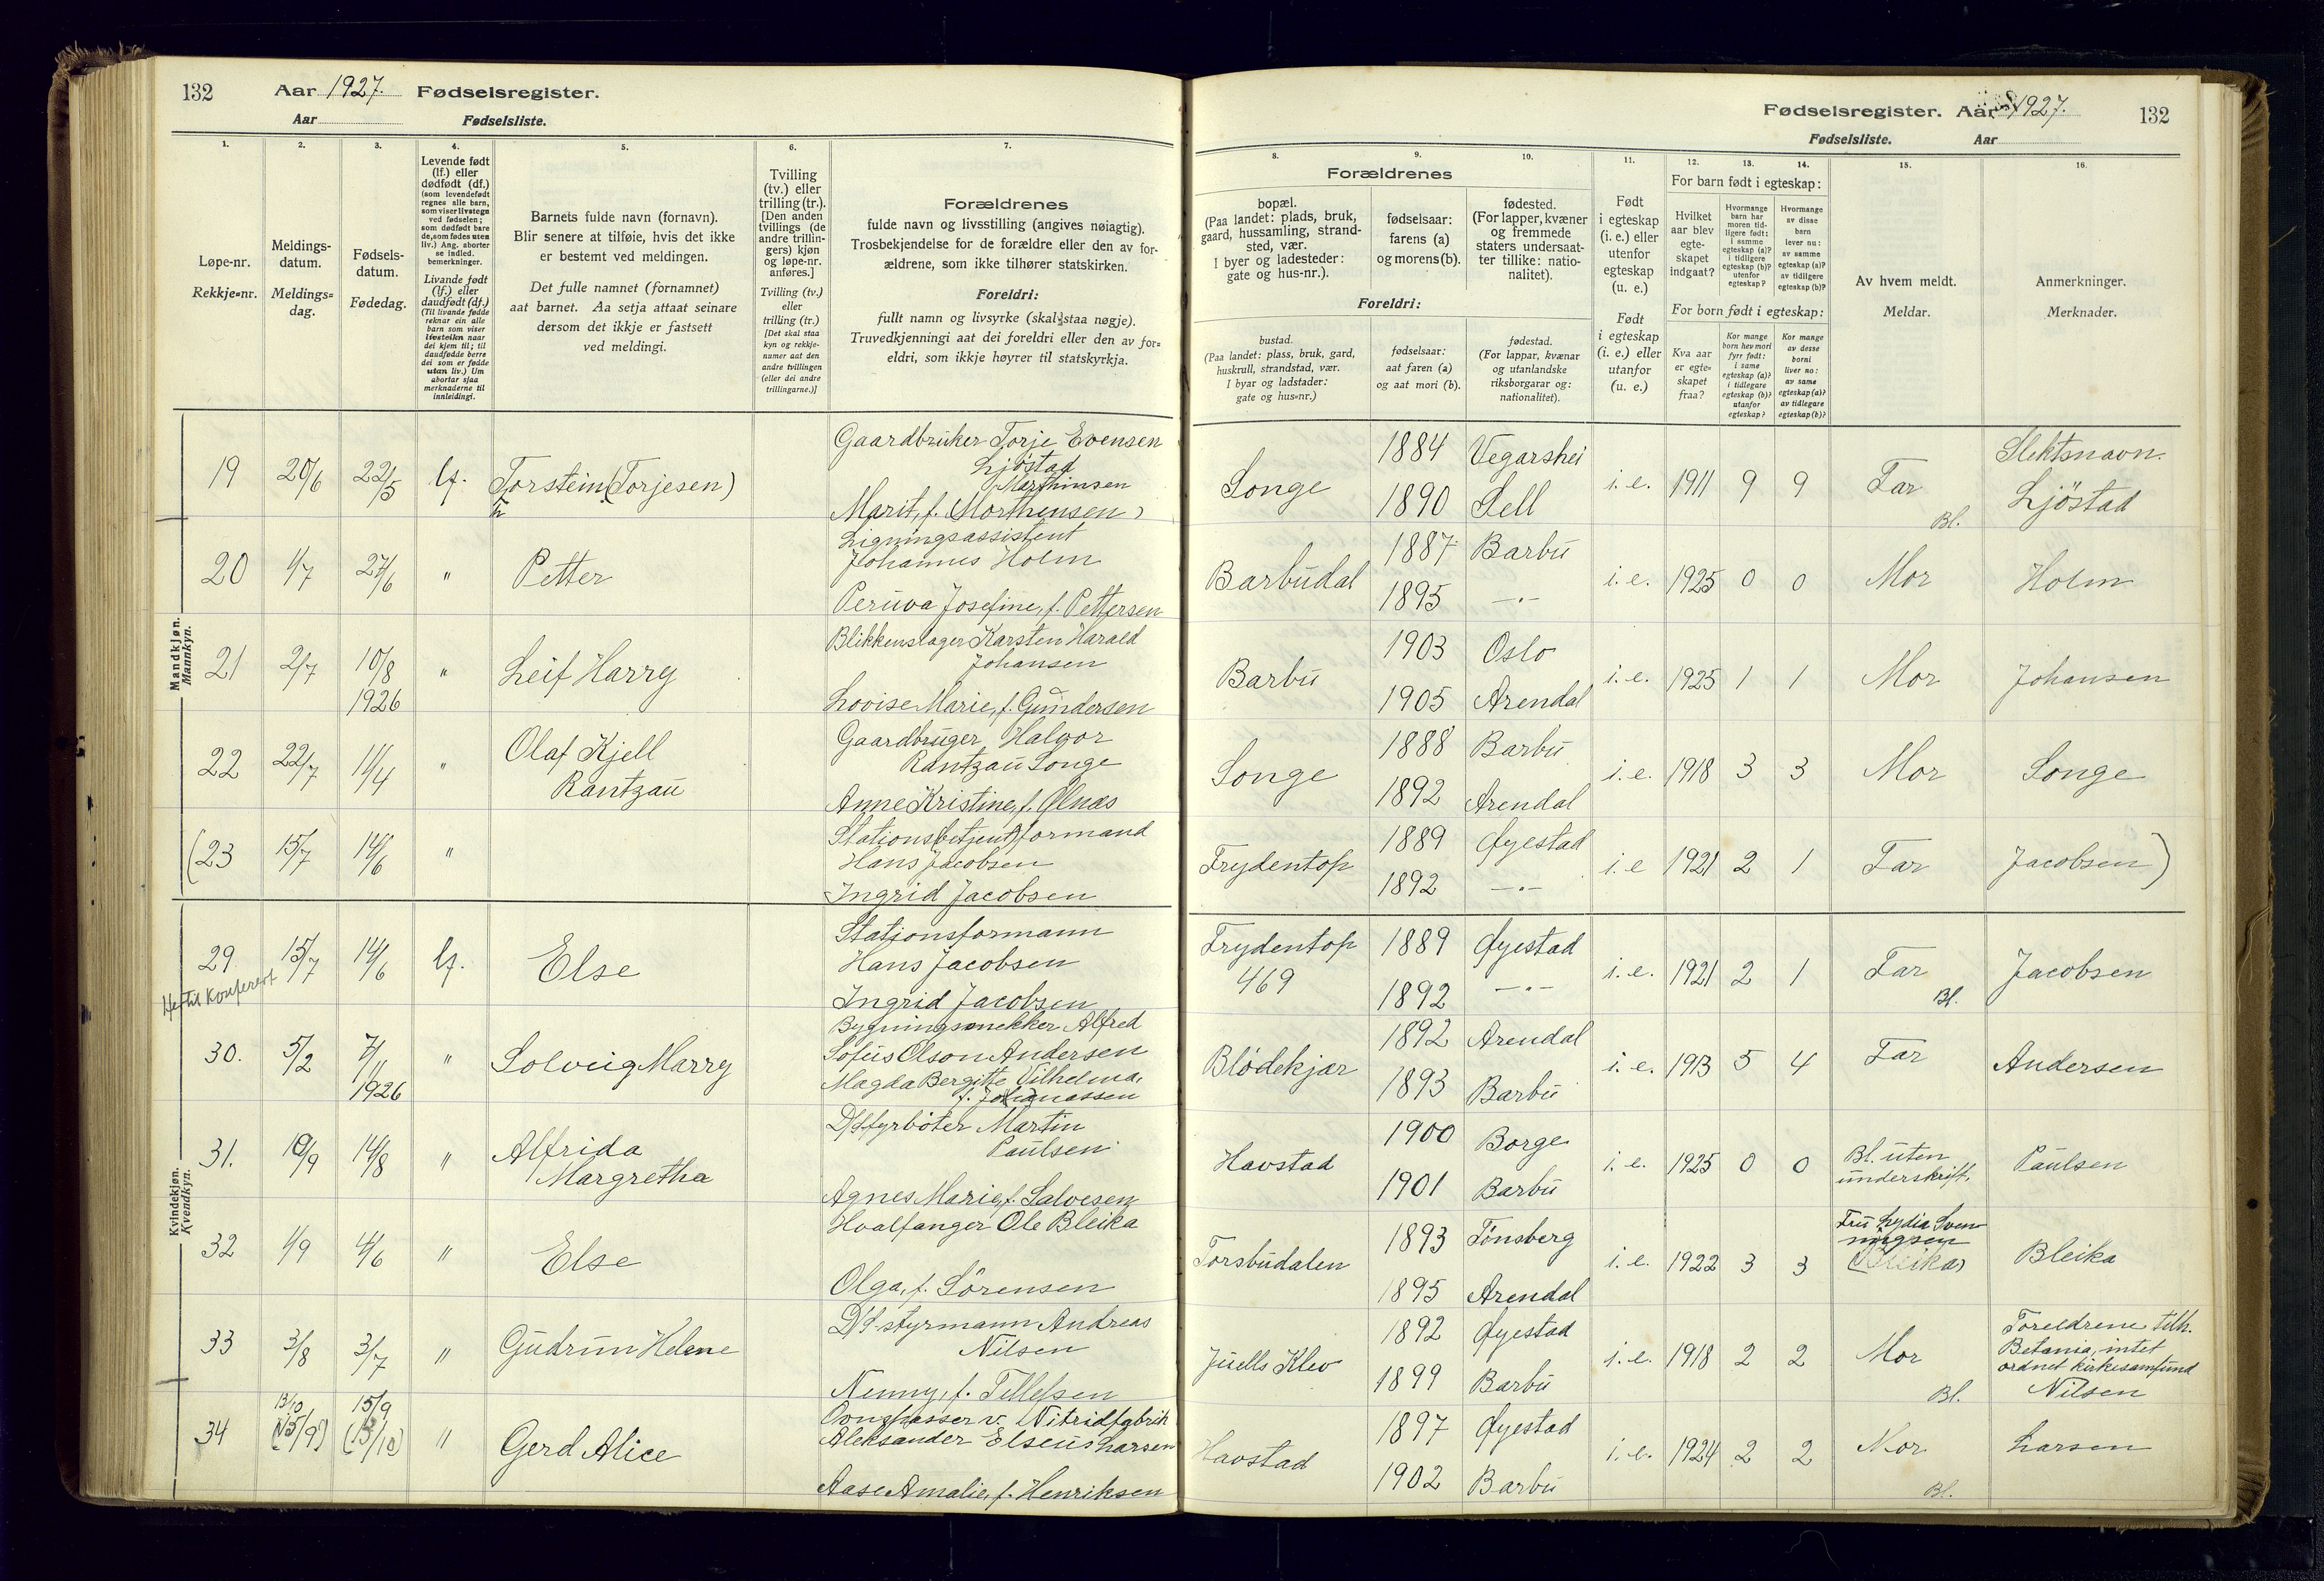 132 Aar 1927. Fødselsregister.
Aar Fødselsliste.
1. 2. 3. 4. 5. 6. 7.
Løpe-nr.
Rekkje=nr.
Meldings-
datum.
Meldings=
dag.
Fødsels-
datum.
Fødedag.
Levende født
(lf.) eller
dødfødt (df.)
(som levendefødt
regnes alle barn,
som viser livstegn
ved fødselen;
som dødfødt bare
de, som fødes uten
liv.) Ang. aborter
se indled.
bemerkninger.
Livande født
(lf.) eller
daudfødt (df.)
(Til livande fødde
reknar ein alle
barn som viser
livsteikn naar
dei kjem til; til
daudfødde berre
dei som er fødde
utan liv.) Um
abortar sjaa
merknaderne til
innleidingi.
Barnets fulde navn (fornavn).
Blir senere at tilføie, hvis det ikke
er bestemt ved meldingen.
Det fulle namnet (fornamnet)
aat barnet. Aa setja attaat seinare
dersom det ikkje er fastsett
ved meldingi.
Tvilling
(tv.) eller
trilling (tr.).
[Den anden
tvillings (de
andre trillin-
gers) kjøn
og løpe-nr.
anføres.]
Tvilling (tv.)
eller
trilling (tr.)
[Det skal staa
kyn og rekkje-
numer aat den
andre tvillingen
(eller dei andre
trillingarne.)]
Forældrenes
fulde navn og livsstilling (angives nøiagtig).
Trosbekjendelse for de forældre eller den av for-
ældrene, som ikke tilhører statskirken.
Foreldri:
fullt namn og livsyrke (skal staa nøgje).
Truvedkjenningi aat dei foreldri eller den av for=
eldri, som ikkje høyrer til statskyrkja.
Mandkjøn.
Mannkyn.
19 20/6 22/5 lf. Torstein (Torjesen)
Gaardbruker Torje Evensen
Ljöstad
Marthinsen
Marit, f. (Morthensen)
20 1/7 27/6 " Petter
Ligningsassistent
Johannes Holm
Peruva Josefine, f. Pettersen
21 2/7 10/8 1926 " Leif Harry
Blikkenslager Karsten Harald
Johansen
Lovise Marie, f. Gundersen
22 22/7 11/4 " Olaf Kjell
Rantzau
Gaardbruger Halvor
Rantzau Songe
Anne Kristine, f. Ølnæs
(23 15/7 14/6 "
Stations(betjent)formand
Hans Jacobsen
Ingrid Jacobsen
Kvindekjøn.
Kvendkyn.
29 15/7 14/6 lf. Else
Hertil Konferert
Stationsformann
Hans Jacobsen
Ingrid Jacobsen
30. 5/2 7/11 1926 " Solveig Marry
Bygningssnekker Alfred
Sofus Olson Andersen
Magda Bergitte Vilhelma,
31. 10/9 14/8 " Alfrida
Margretha
D/S fyrböter Martin
Paulsen
Agnes Marie, f. Salvesen
32 1/9 4/6 " Else
Hvalfanger Ole Bleika
Olga, f. Sörensen
33 3/8 3/7 " Gudrun Helene
D/S-styrmann Andreas
Nilsen
Nenny, f. Tellefsen
34 13/10 (15/9) 15/9 (13/10) " Gerd Alice
Ovnspasser v. Nitridfabrik
Aleksander Elseus Larsen
Aase Amalie, f. Henriksen
Fødselsregister. Aar 1927. 132
Fødselsliste. Aar
8. 9. 10. 11. 12. 13. 14. 15. 16.
Forældrenes
bopæl.
(Paa landet: plads, bruk,
gaard, hussamling, strand-
sted, vær.
I byer og ladesteder:
gate og hus-nr.).
fødselsaar:
farens (a)
og morens (b).
fødested.
(For lapper, kvæner
og fremmede
staters undersaat-
ter tillike: natio-
nalitet).
Foreldri:
bustad.
(Paa landet: plass, bruk, gard,
huskrull, strandstad, vær.
I byar og ladstader:
gate og hus=nr.)
fødselsaar:
aat faren (a)
og aat mori (b).
fødestad.
(For lappar, kvænar
og utanlandske
riksborgarar og:
nationalitet).
Født
i egteskap
(i. e.) eller
utenfor
egteskap
(u. e.)
Født
i egteskap
(i. e.) eller
utanfor
(u. e.)
For barn født i egteskap:
Hvilket
aar blev
egte-
skapet
indgaat?
Hvormange
barn har
moren tid-
ligere født:
i samme
egteskap (a)?
i tidligere
egteskap (b)?
utenfor
egteskap?
Hvormange
av disse
barn
lever nu:
av samme
egteskap (a)?
av tidligere
egteskap (b)?
For born født i egteskap:
Kva aar
er egte=
skapet
fraa?
Kor mange
born hev mori
fyrr født:
i same
egteskap (a)?
i tidlegare
egteskap (b)?
utanfor
egteskap?
Kor mange
av desse
borni
liver no:
av same
egteskap (a)?
av tidlegare
egteskap (b)?
Av hvem meldt.
Meldar.
Anmerkninger.
Merknader.
Songe 1884 Vegarshei
1890 Sell
i. e. 1911 9 9 Far Bl. Slektsnavn.
Ljöstad
Barbudal 1887 Barbu
1895 —"—
i. e. 1925 0 0 Mor Holm
Barbu 1903 Oslo
1905 Arendal
i. e. 1925 1 1 Mor Johansen
Songe 1888 Barbu
1892 Arendal
i. e. 1918 3 3 Mor Songe
Frydentop 1889 Øyestad
1892 —"—
i. e 1921 2 1 Far Jacobsen)
Frydentop 469 1889 Øyestad
1892 —"—
i. e. 1921 2 1 Far Bl. Jacobsen
Blödekjær 1892 Arendal
1893 Barbu
i. e. 1913 5 4 Far Andersen
Havstad 1900 Borge
1901 Barbu
i. e. 1925 0 0 Bl. uten
underskrift. Paulsen
Torsbudalen 1893 Tönsberg
1895 Arendal
i. e. 1922 3 3 Fru Lydia Sven
ningsen
(Bleika) Bleika
Juells Klev 1892 Øyestad
1899 Barbu
i. e. 1918 2 2 Mor Bl. Foreldrene tilh.
Betania, intet
ordnet kirkesamfund
Nilsen
Havstad 1897 Øyestad
1902 Barbu
i. e. 1924 2 2 Mor Bl. Larsen